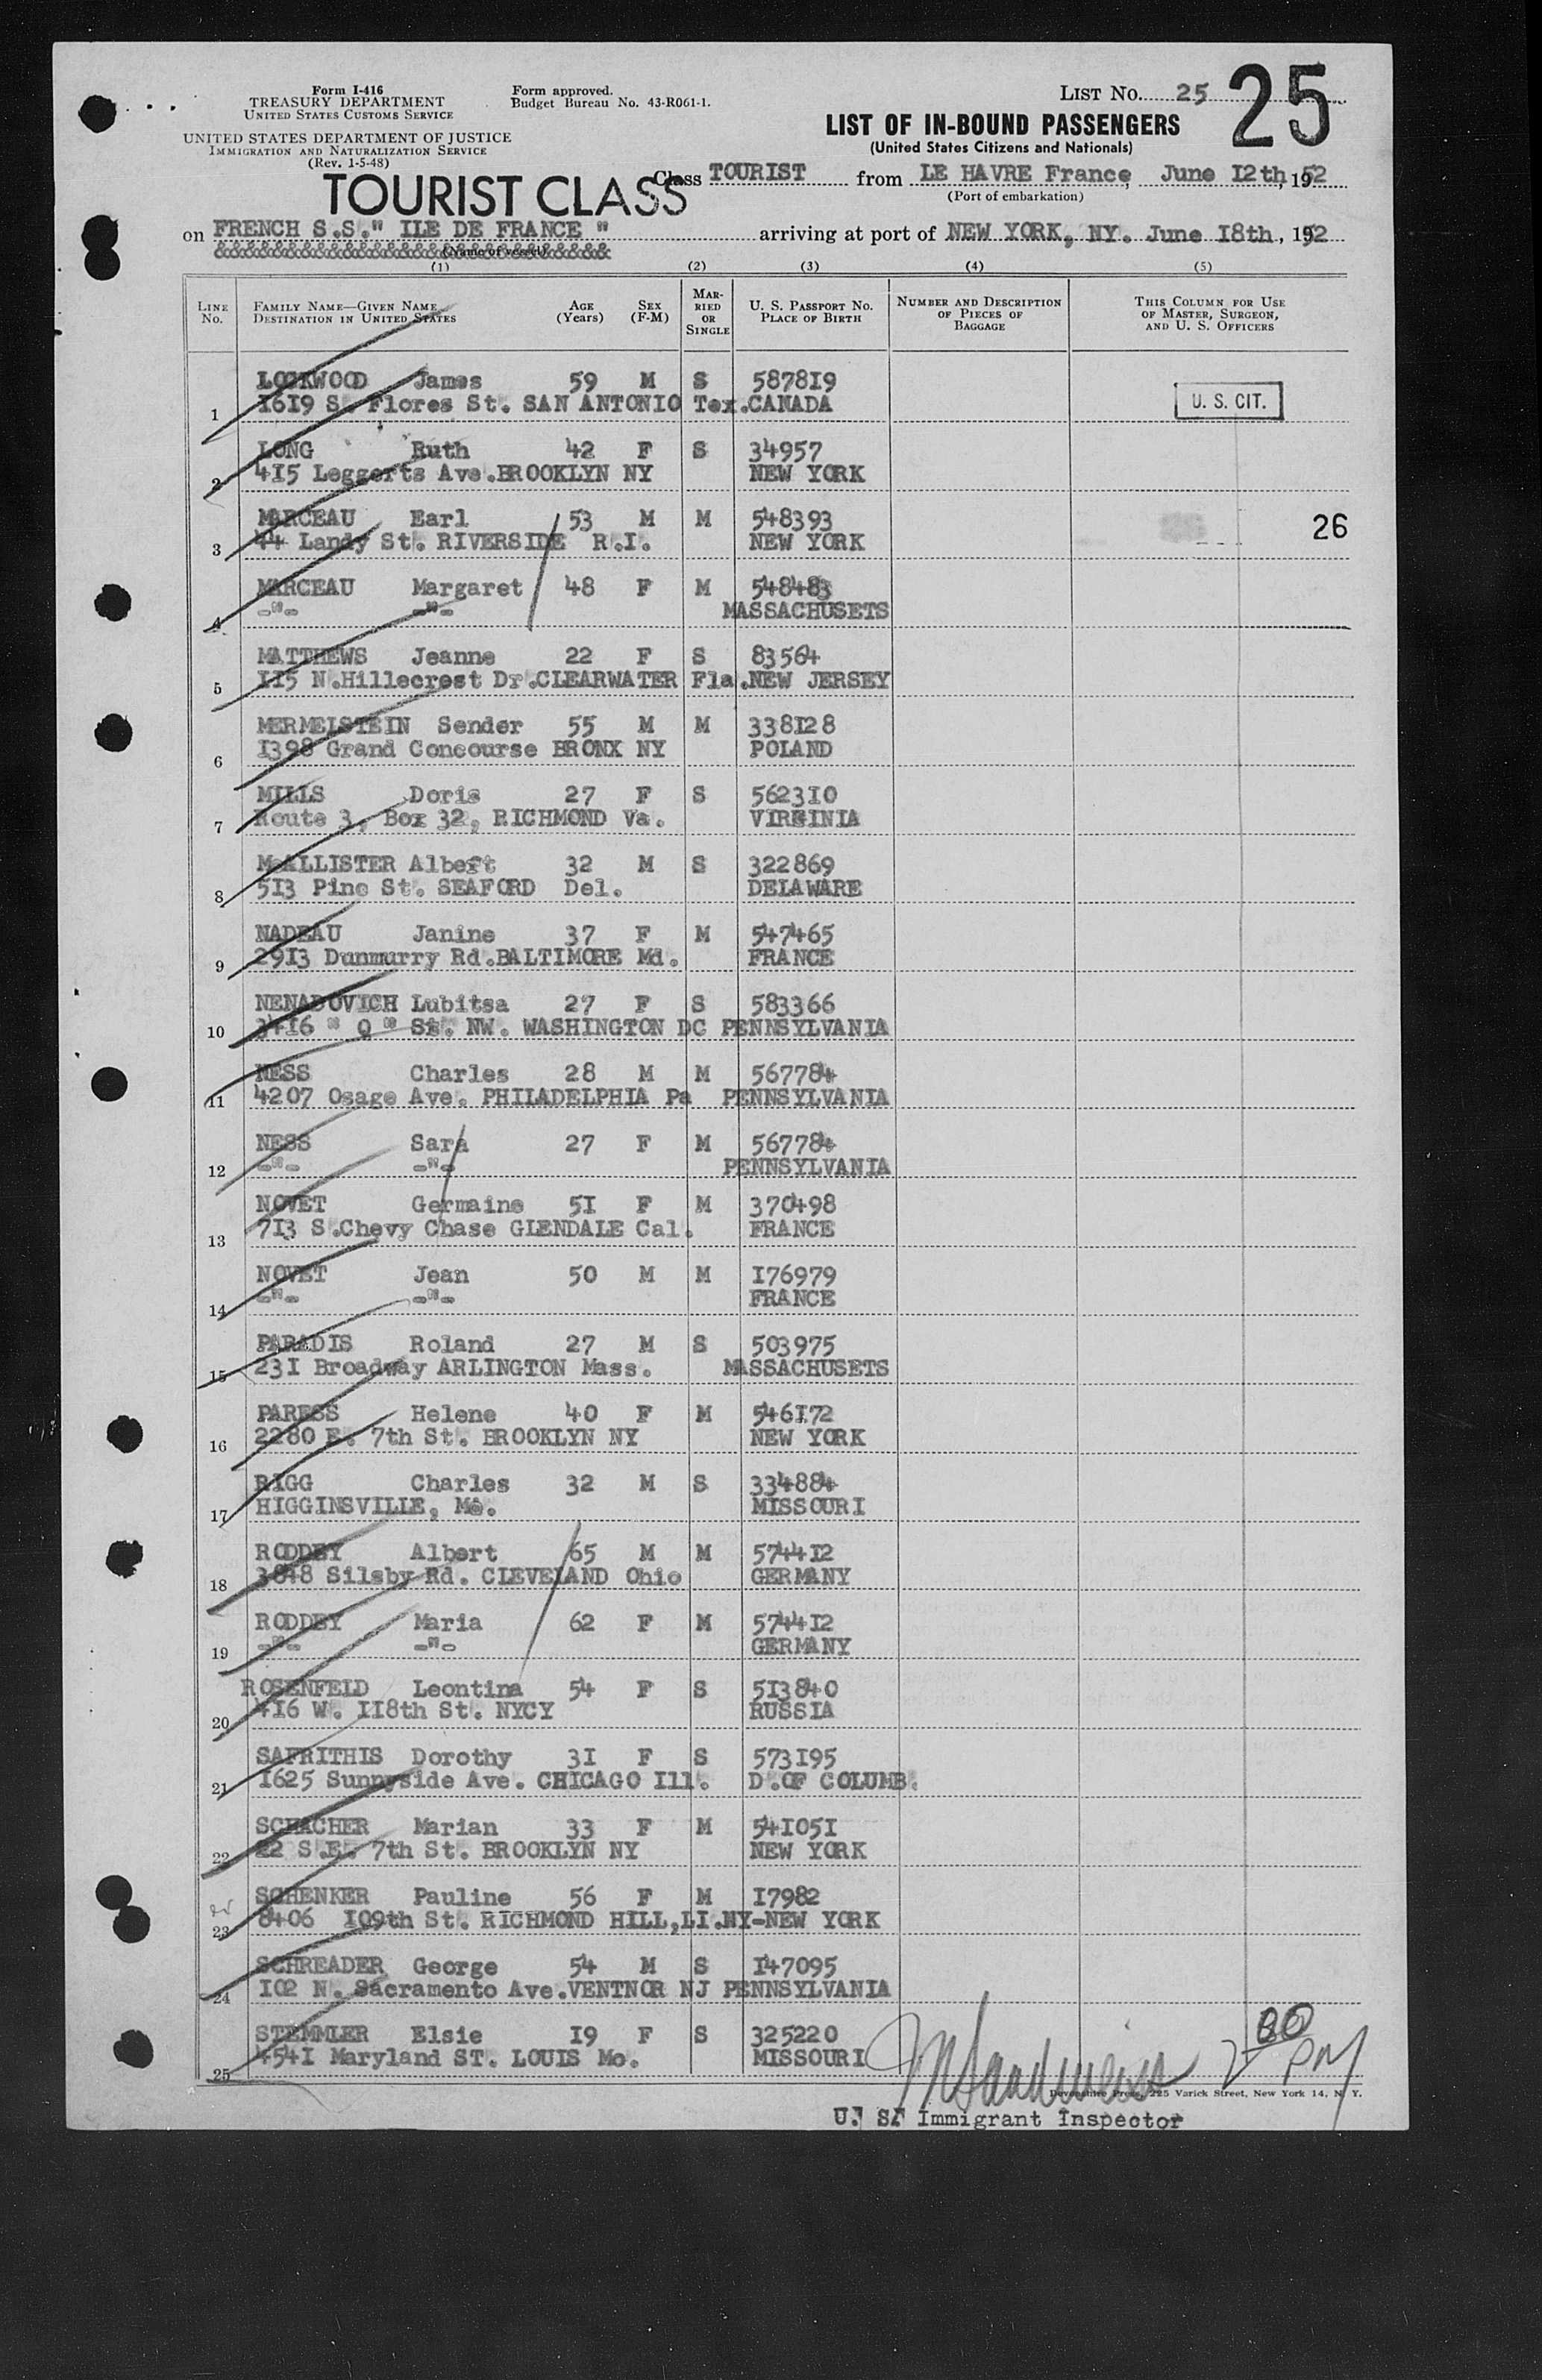 Form I-416
TREASURY DEPARTMENT
UNITED STATES CUSTOMS SERVICE
UNITED STATES DEPARTMENT OF JUSTICE
IMMIGRATION AND NATURALIZATION SERVICE
(Rev. 1-5-48)
Form approved.
Budget Bureau No. 43-R061-1.
LIST NO. 25
25
LIST OF IN-BOUND PASSENGERS
(United States Citizens and Nationals)
TOURIST CLASS
Class TOURIST from LE HAVRE France, June I2th, 1952
(Port of embarkation)
on FRENCH S.S." ILE DE FRANCE " arriving at port of NEW YORK, NY. June I8th, 1952
(Name of vessel)
(1) (2) (3) (4) (5)
LINE No. FAMILY NAME—GIVEN NAME DESTINATION IN UNITED STATES AGE (Years) SEX (F-M) MARRIED OR SINGLE U. S. PASSPORT NO. PLACE OF BIRTH NUMBER AND DESCRIPTION OF PIECES OF BAGGAGE THIS COLUMN FOR USE OF MASTER, SURGEON, AND U. S. OFFICERS
LOCKWOOD James 59 M S 587819
1 1619 S. Flores St. SAN ANTONIO Tex. CANADA U. S. CIT.
LONG Ruth 42 F S 34957
2 415 Leggerts Ave.BROOKLYN NY NEW YORK
MARCEAU Earl 53 M M 548393 26
3 44 Landy St. RIVERSIDE R.I. NEW YORK
MARCEAU Margaret 48 F M 548483
4 -"- -"- MASSACHUSETS
MATTHEWS Jeanne 22 F S 83564
5 115 N.Hillecrest Dr.CLEARWATER Fla.NEW JERSEY
MERMELSTEIN Sender 55 M M 338128
6 1398 Grand Concourse BRONX NY POLAND
MILLS Doris 27 F S 562310
7 Route 3, Box 32, RICHMOND Va. VIRGINIA
McALLISTER Albert 32 M S 322869
8 513 Pine St. SEAFORD Del. DELAWARE
NADEAU Janine 37 F M 547465
9 2913 Dunmurry Rd.BALTIMORE Md. FRANCE
NENADOVICH Lubitsa 27 F S 583366
10 3416 " Q " St. NW. WASHINGTON DC PENNSYLVANIA
NESS Charles 28 M M 567784
11 4207 Osage Ave. PHILADELPHIA Pa PENNSYLVANIA
NESS Sara 27 F M 567784
12 -"- -"- PENNSYLVANIA
NOVET Germaine 51 F M 370498
13 713 S.Chevy Chase GLENDALE Cal. FRANCE
NOVET Jean 50 M M 176979
14 -"- -"- FRANCE
PARADIS Roland 27 M S 503975
15 231 Broadway ARLINGTON Mass. MASSACHUSETS
PARESS Helene 40 F M 546172
16 2280 E. 7th St. BROOKLYN NY NEW YORK
RIGG Charles 32 M S 334884
17 HIGGINSVILLE, Mo. MISSOURI
RODDEY Albert 65 M M 574412
18 3848 Silsby Rd. CLEVELAND Ohio GERMANY
RODDEY Maria 62 F M 574412
19 -"- -"- GERMANY
ROSENFELD Leontina 54 F S 513840
20 416 W. 118th St. NYCY RUSSIA
SAFRITHIS Dorothy 31 F S 573195
21 1625 Sunnyside Ave. CHICAGO Ill. D.OF COLUMB.
SCHACHER Marian 33 F M 541051
22 22 S.E. 7th St. BROOKLYN NY NEW YORK
SCHENKER Pauline 56 F M 17982
23 8406 109th St. RICHMOND HILL,LI.NY-NEW YORK
SCHREADER George 54 M S 147095
24 102 N. Sacramento Ave.VENTNOR NJ PENNSYLVANIA
STEMMLER Elsie 19 F S 325220
25 4541 Maryland ST. LOUIS Mo. MISSOURI
2 00 PM
Devonshire Press, 225 Varick Street, New York 14, N. Y.
U. S. Immigrant Inspector